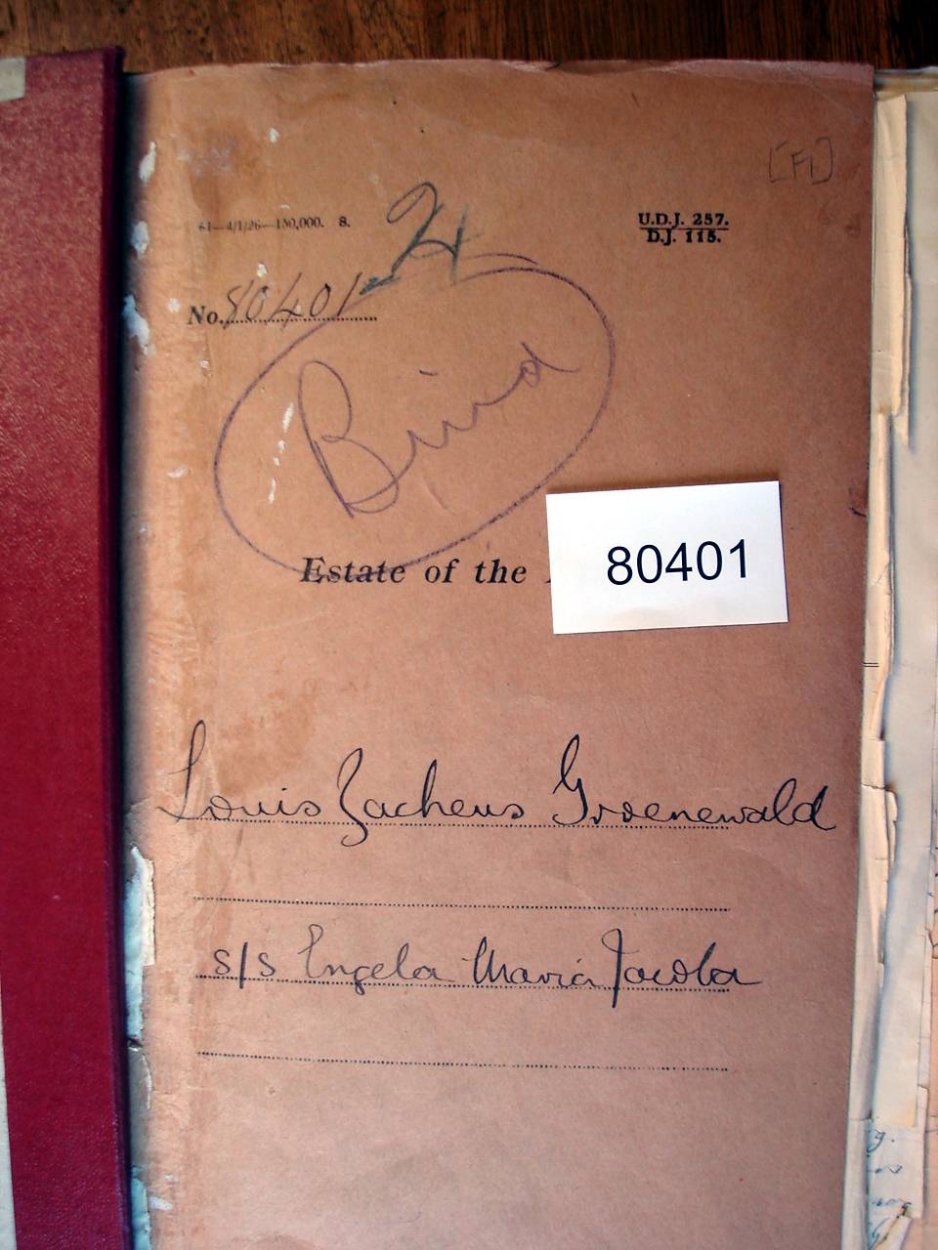 [F1]
61—4/1/26—150,000. 8.
U.D.J. 257.
D.J. 115.
No. 80401
Bind
Estate of the
80401
Louis Zacheus Groenewald
s/s Engela Maria Jacoba